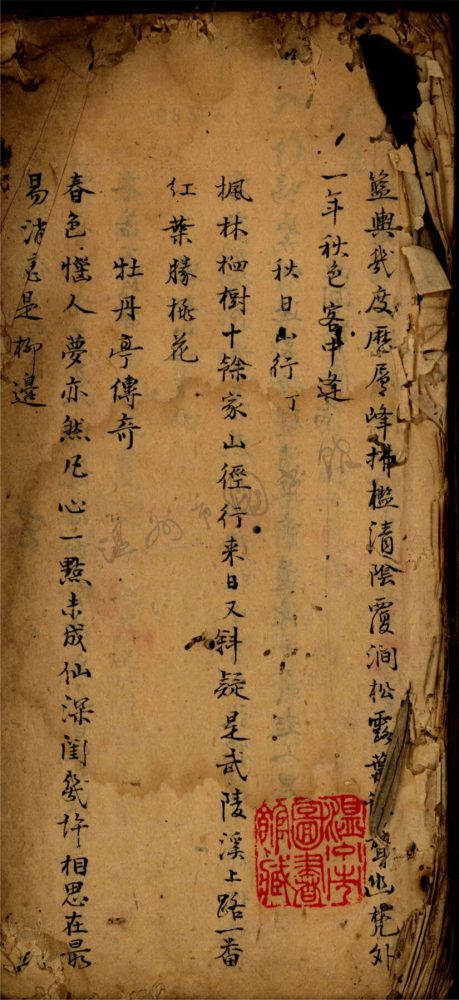 籃輿幾度歷層峰拂檻清陰覆澗松露葉聲幽梵外
一年秋色客中逢
秋日山行丁
楓林桕樹十餘家山徑行来日又斜疑是武陵溪上路一番
紅葉勝桃花
牡丹亭傳奇
春色惱人夢亦然凡心一點未成仙深閨幾許相思在最
易消意是柳邊
温州市圖書館藏